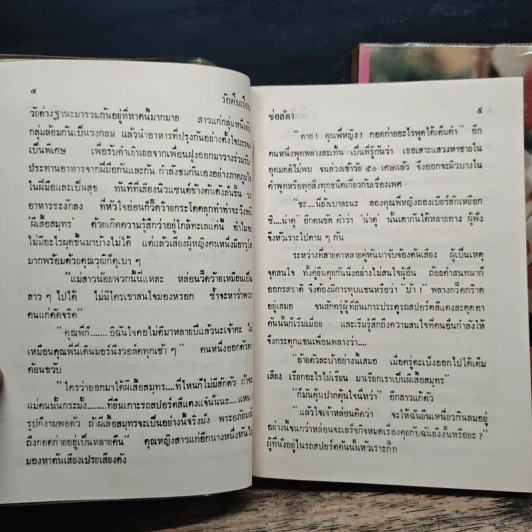 ๔
รักคืนเรือน
วัยต่างฐานะมารวมกันอยู่ที่หาดนี้มากมาย สาวแก่กลุ่มหนึ่งนั่ง
กลุ่มล้อมกันเป็นวงกลม แล้วนำอาหารที่ปรุงกันอย่างตั้งใจ
เป็นพิเศษ เพื่อรับคำเยินยอจากเพื่อนฝูงออกมาวางร่วมรับ
ประทานอาหารจากฝีมือกันและกัน กำลังชมกันเองอย่างภาคภูมิใจ
ในฝีมือและเป็นสุข ทันทีที่เสียง
อาหารชะงักลง
ผีเสื้อสมุทร ด้วยเกิดความรู้สึกว่าอยู่ใกล้ทะเลแค่นี้ ทำไม
ไม่มีอะไรผุดขึ้นมาบ้างไม่ได้ แต่แล้วเสียงผู้หญิงคนหนึ่งมีอายุ
มากพร้อมด้วยคุณวุฒิก็ดุเบา ๆ
"แม่สาวน้อยพวกนี้นี่แหละ หล่อน
สาว ๆ ไปได้ ไม่มีใครเขาสนใจมองหรอก ซ้ำจะหาว่าพวก
คนแก่ดัดจริต"
"คุณพี่ก็...... อิฉันใจคอไม่ดีมาหลายปีแล้วนะเจ้าคะ ไม่
เหมือนคุณพี่นี่คะ ทุกเช้า ๆ" คนหนึ่งออกตัว
ค้อนขวับ
"ใครว่าออกมาได้ผีเสื้อสมุทร....ที่ไหนก็ไม่สักตัว ถ้าจะ
แม่คนนั้นกระมั้ง......ที่ยืนเกาะรถสปอร์ตสีแดงแจ๋นั่นนะ....มาค
รูปก็งามพอตัว ถ้าผีเสื้อสมุทรจะเป็นอย่างนี้จริงมั่ง พระอภัยมณี
ถึงกอดก่ายอยู่เป็นหลายคืน" คุณหญิงสาวแก่อีกนางหนึ่งหันไป
มองหาต้นเสียงเปรยเสียงดัง
ช่อลัดา
๕
"ตาย! คุณพี่หญิง! กอดก่ายอะไรพูดได้เต็มคำ" อีก
คนหนึ่งพูดพลางสะเทิ้น เป็นที่รู้กันว่า เธอเสาะแสวงหาชายใน
อุดมคติไม่พบ จนล่วงเข้าวัย ๕๐ เศษแล้ว จึงออกจะผิวบางใน
คำพูดหรือทุกสิ่งทุกชนิดเกี่ยวกับเรื่องเพศ
"ซะ....นี่ยังเบานะ ลองคุณพี่หญิงของเบียร์สักเหยือก
ซี....น่าดู" อีกคนขัด คำว่า "น่าดู" นั้นเดากันได้หลายทาง ผู้ฟัง
จึงหัวเราะไปตาม ๆ กัน
ระหว่างที่สายตาหลายคู่หันมาจับจ้องต้นเสียง ผู้เป็นเหตุ
จุดสนใจ ทั้งคู่ยืนคุยกันนิ่งอย่างไม่สนใจผู้อื่น ถ้อยคำสนทนาก็
ออกรสชาติ จึงต้องมีการทุบแขนหรือว่า "บ้า!" พลางกรี๊ดกร๊าด
อยู่เสมอ จนสักครู่ผู้ที่ยืนเกาะประตูรถสปอร์ตสีแดงสะดุดตา
คันนั้นก็เริ่มเมื่อย และเริ่มรู้สึกถึงความสนใจที่คนอื่นกำลังให้
จึงกระตุกแขนเพื่อนพลางว่า....
"อ้ายตัวละบ้าอย่างนี้เสมอ เมื่อครู่ตะเบ็งออกไปได้เต็ม
เสียง เรียกอะไรไม่เรียก มาเรียกเราเป็นผีเสื้อสมุทร"
"ก็มันคุ้นปากคุ้นใจนี่หว่า" อีกสาวแก้ตัว
"แล้วใจเจ้าหล่อนคิดว่า จะให้ฉันยืนเหนี่ยวกันลมอยู่
อย่างนี้จนกว่าหล่อนจะเสร็จกิจหมดเรื่องคุยกับฉันยังงั้นหรือยะ?"
ผู้ที่นั่งอยู่ในรถสปอร์ตคันนั้นหัวเราะกิ๊ก